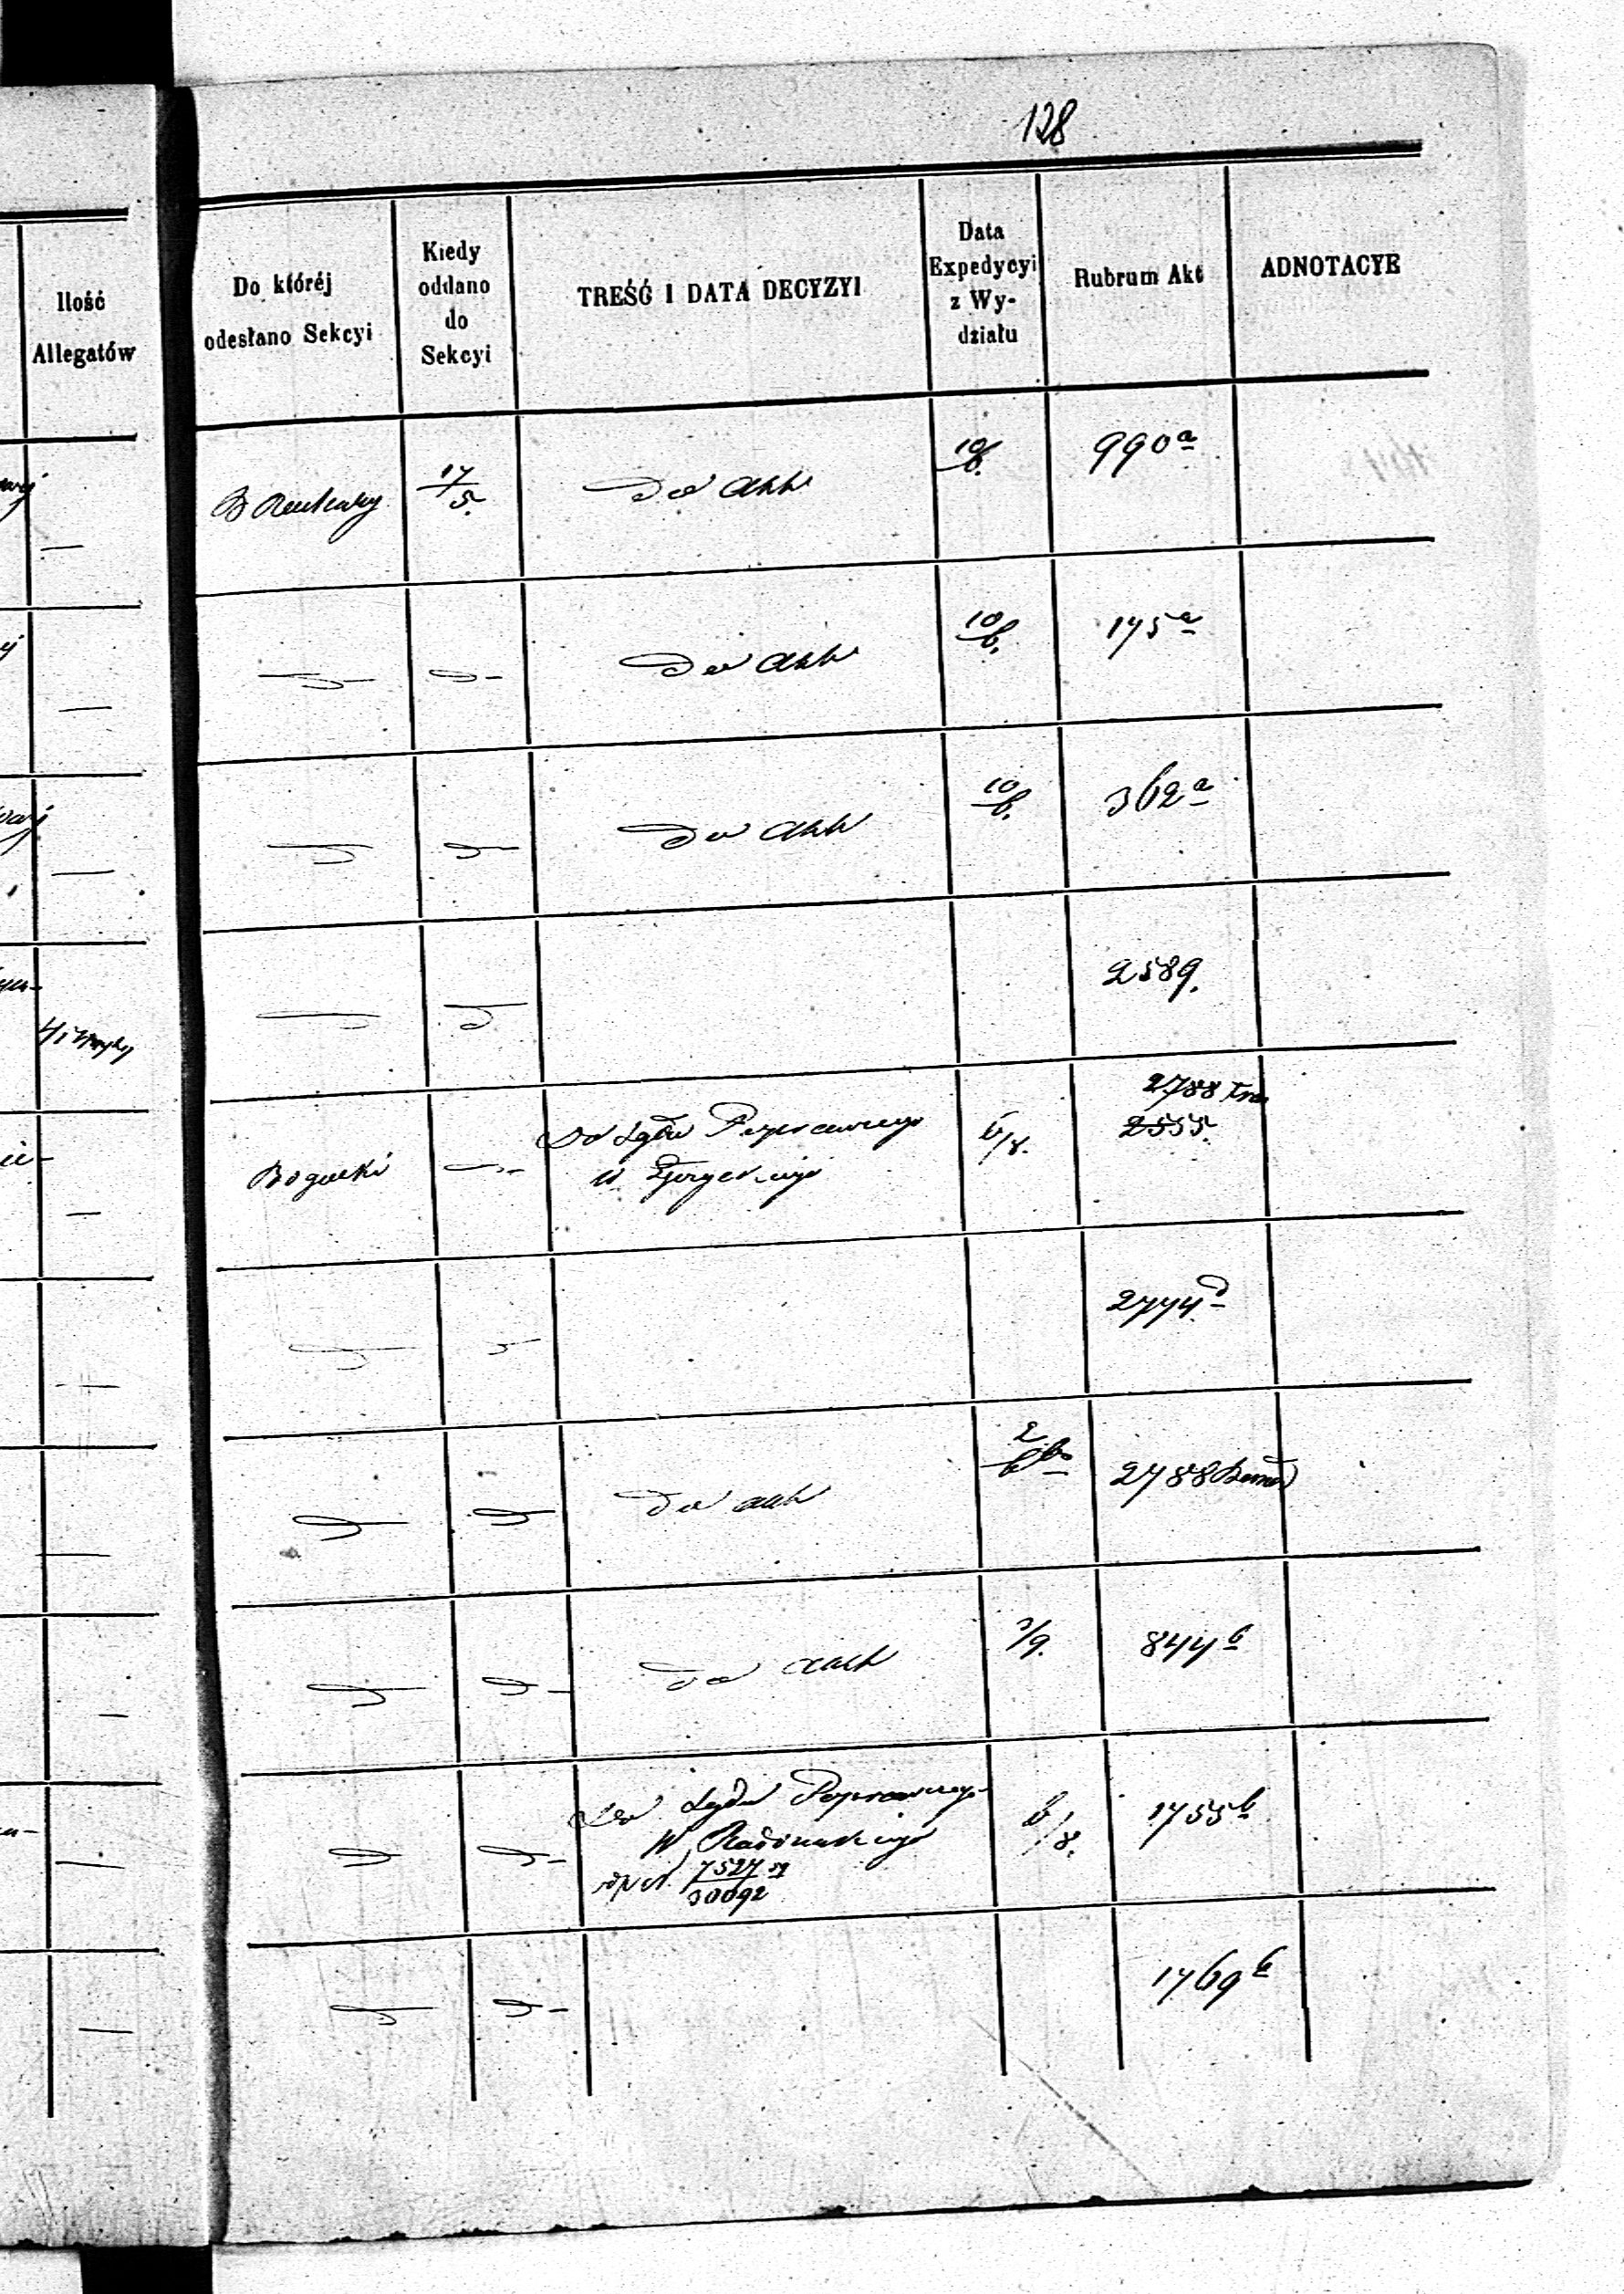 128
Ilość
Allegatów
Do któréj
odesłano Sekcyi
Kiedy
oddano
do
Sekcyi
TREŚĆ I DATA DECYZYI
Data
Expedycyi
z Wy-
działu
Rubrum Akt
ADNOTACYE
17/5. Do Akt 10/6. 990 a
Do Akt 10/6. 175 a
Do Akt 10/6. 362 a
2589.
2788
Bogucki Do Sądu Poprawczego 6/8. 2555.
w
2774 d
Do akt 2/6 2788
Do akt 3/9. 844 b
Do Sądu Poprawczego
w Radomskiego 6/8. 1755 b
7527
30092
1769 b